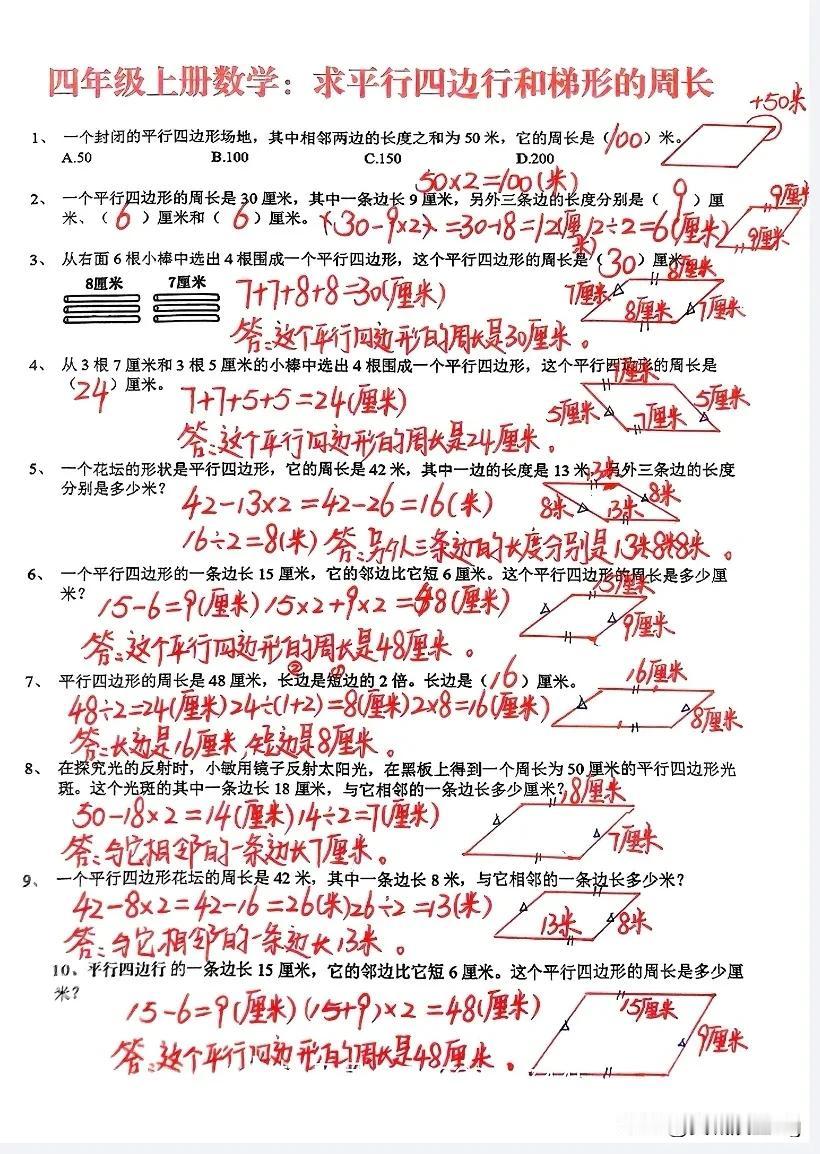 四年级上册数学：求平行四边行和梯形的周长
+50米
1、 一个封闭的平行四边形场地，其中相邻两边的长度之和为 50 米，它的周长是（100）米。
A.50 B.100 C.150 D.200
50×2=100(米)
2、 一个平行四边形的周长是 30 厘米，其中一条边长 9 厘米，另外三条边的长度分别是（ 9 ）厘
米、（ 6 ）厘米和（ 6 ）厘米。 (30-9×2) =30-18=12(厘米) 12÷2=6(厘米)
9厘米
9厘米
3、 从右面 6 根小棒中选出 4 根围成一个平行四边形，这个平行四边形的周长是（30）厘米。
8厘米 7厘米
7+7+8+8=30(厘米)
8厘米
7厘米 8厘米 7厘米
答：这个平行四边形的周长是30厘米。
4、 从 3 根 7 厘米和 3 根 5 厘米的小棒中选出 4 根围成一个平行四边形，这个平行四边形的周长是
（24）厘米。 7+7+5+5=24(厘米)
7厘米
5厘米 7厘米 5厘米
答：这个平行四边形的周长是24厘米。
5、 一个花坛的形状是平行四边形，它的周长是 42 米，其中一边的长度是 13 米，另外三条边的长度
分别是多少米？ 42-13×2=42-26=16(米)
13米
8米 13米 8米
16÷2=8(米) 答：另外三条边的长度分别是13米8米8米。
6、 一个平行四边形的一条边长 15 厘米，它的邻边比它短 6 厘米。这个平行四边形的周长是多少厘
米？ 15-6=9(厘米) 15×2+9×2=48(厘米)
15厘米
9厘米
答：这个平行四边形的周长是48厘米。
② ①
7、 平行四边形的周长是 48 厘米，长边是短边的 2 倍。长边是（16）厘米。
16厘米
48÷2=24(厘米) 24÷(1+2)=8(厘米) 2×8=16(厘米)
8厘米
答：长边是16厘米，短边是8厘米。
8、 在探究光的反射时，小敏用镜子反射太阳光，在黑板上得到一个周长为 50 厘米的平行四边形光
斑。这个光斑的其中一条边长 18 厘米，与它相邻的一条边长多少厘米？
18厘米
50-18×2=14(厘米) 14÷2=7(厘米)
7厘米
答：与它相邻的一条边长7厘米。
9、 一个平行四边形花坛的周长是 42 米，其中一条边长 8 米，与它相邻的一条边长多少米？
42-8×2=42-16=26(米) 26÷2=13(米)
13米 8米
答：与它相邻的一条边长13米。
10、平行四边行 的一条边长 15 厘米，它的邻边比它短 6 厘米。这个平行四边形的周长是多少厘
米？
15-6=9(厘米) (15+9)×2=48(厘米)
15厘米
9厘米
答：这个平行四边形的周长是48厘米。